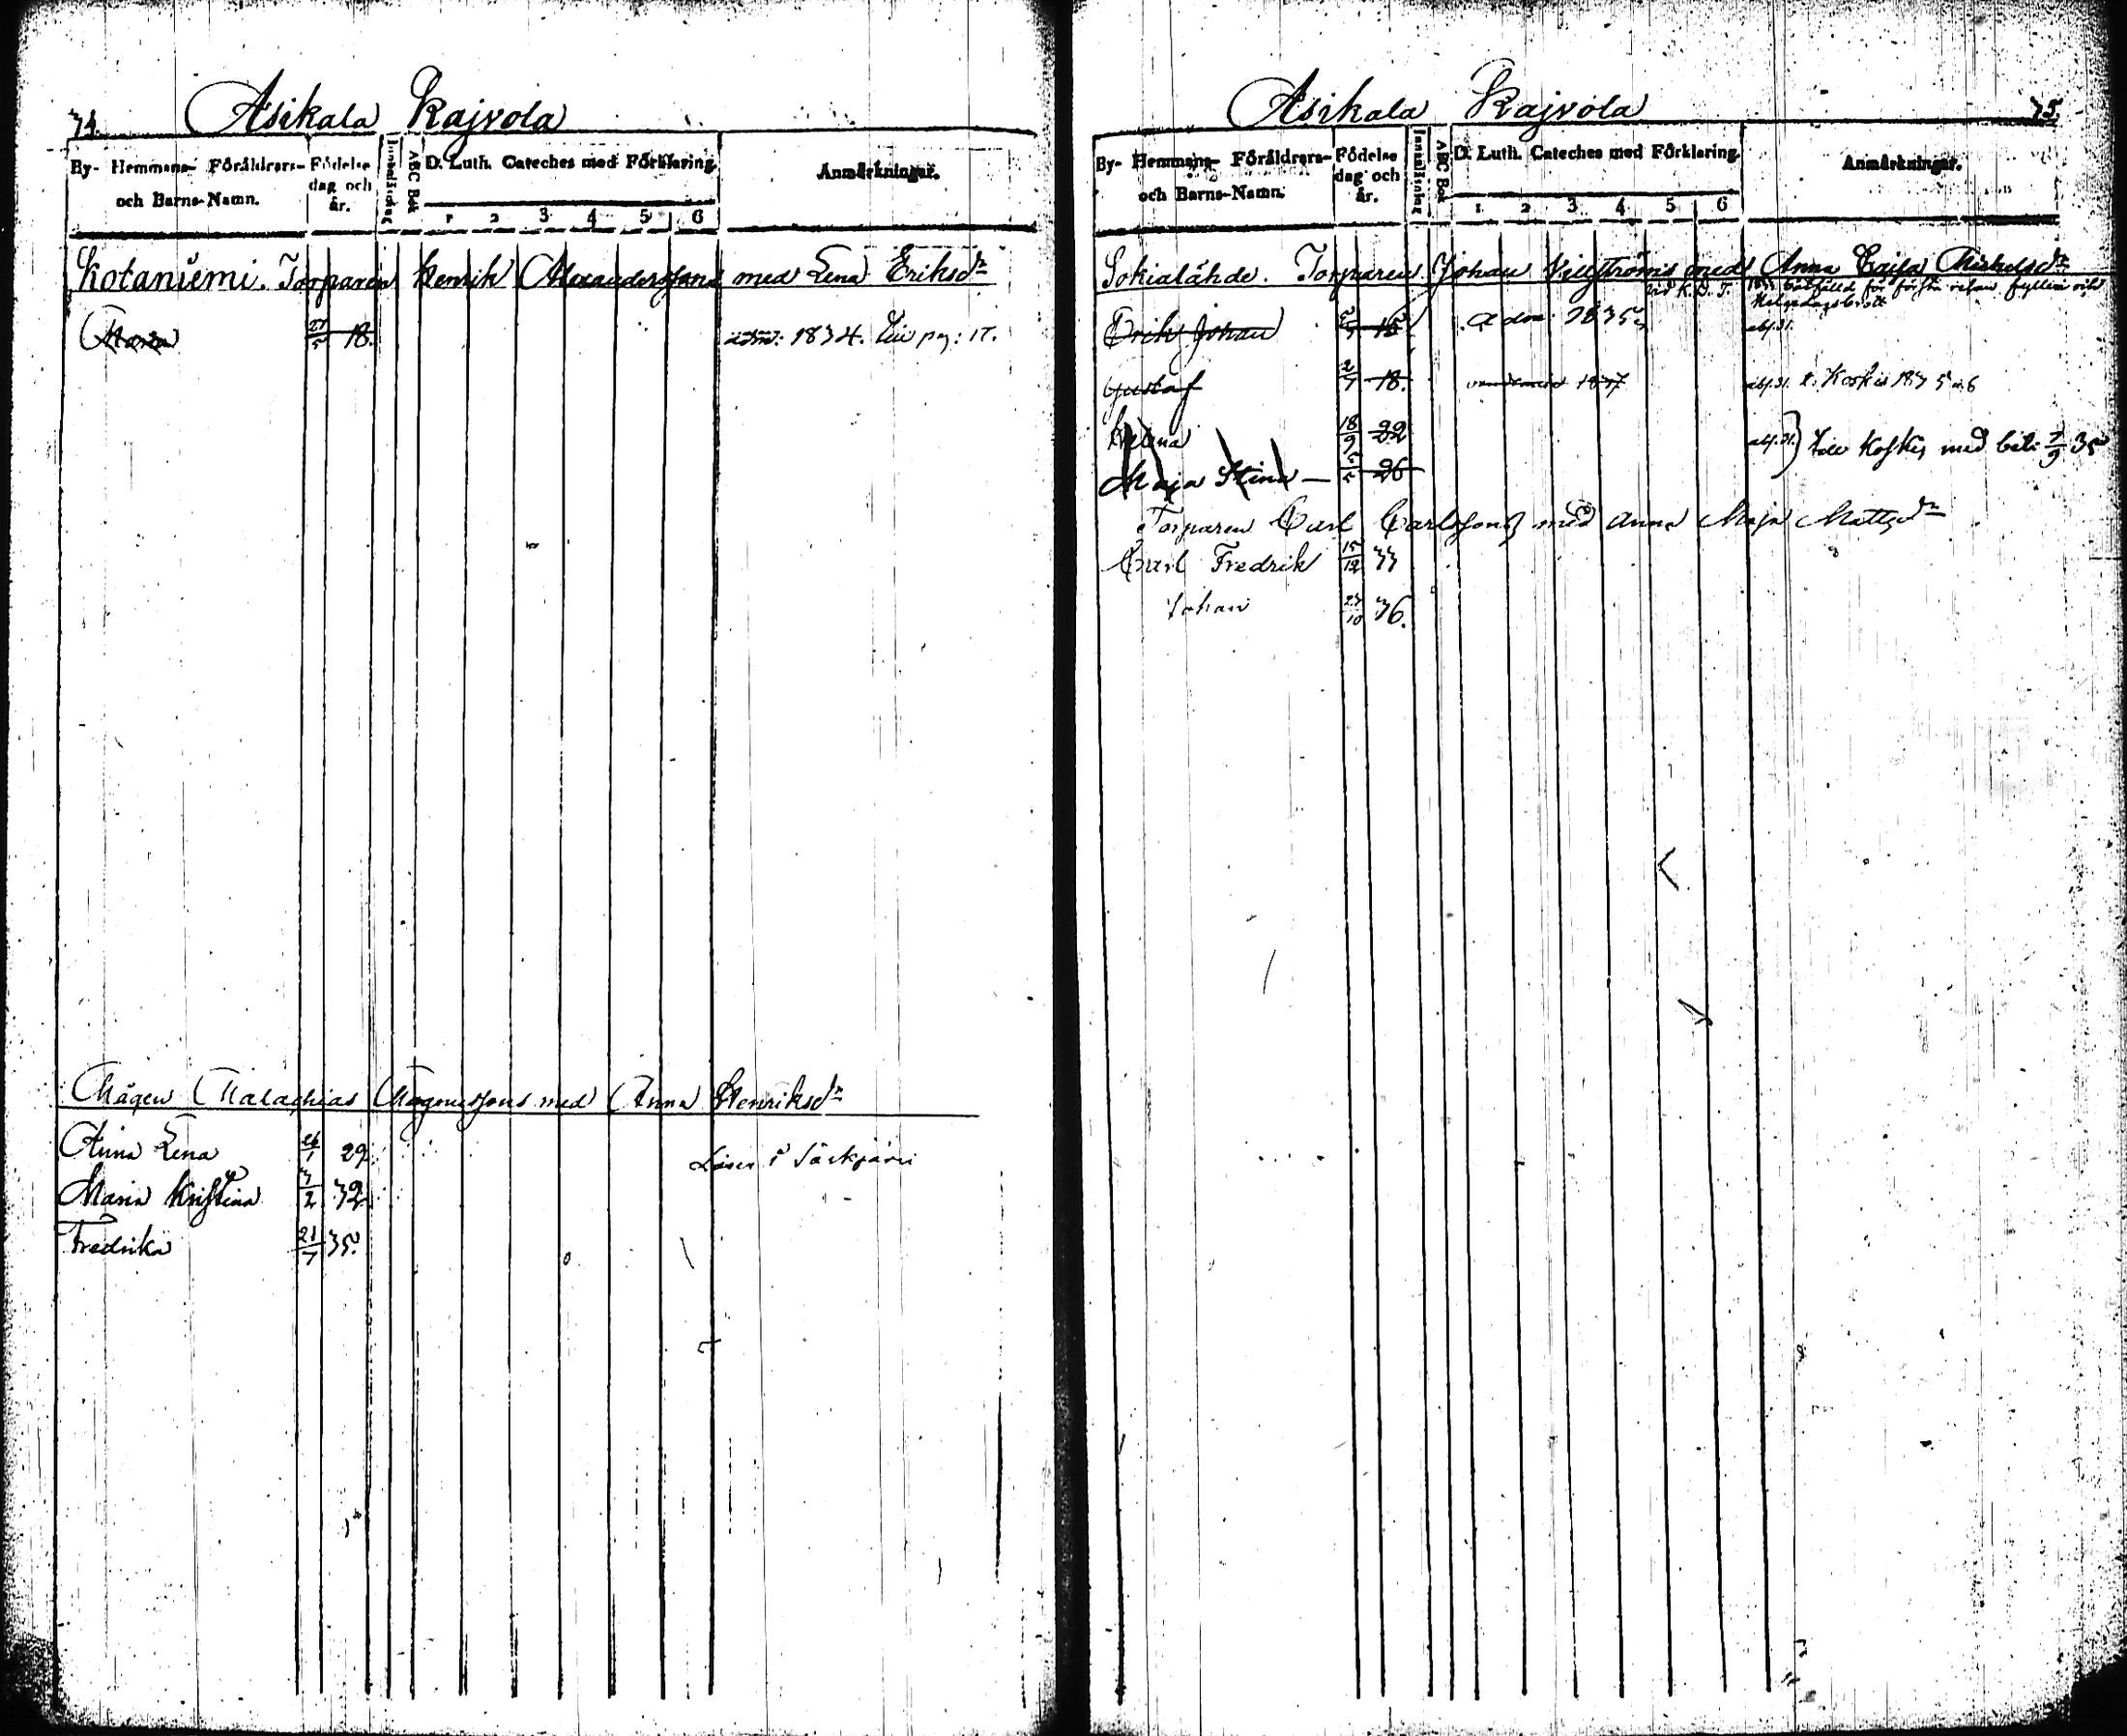 74. Asikala Kajvola
By- Hemmans- Föräldrars- och Barns-Namn.
Födelse dag och år.
Innanläsning
ABC Bok
D. Luth. Cateches med Förklaring.
1 2 3 4 5 6
Anmärkningar.
Kotaniemi. Torparen Henrik Alexanderssons med Lena Eriksdr
Maria 27/5 18. adm: 1834. Liv pag: 17.
Mågen Malachias Magnussons med Anna Henriksdr
Anna Lena 26/1 29. Läser i Särkjärvi
Maria Kristina 3/2 32.
Fredrika 21/7 35.
Asikala Kajvola 75.
By- Hemmans- Föräldrars- och Barns-Namn.
Födelse dag och år.
Innanläsning
ABC Bok
D. Luth. Cateches med Förklaring.
1 2 3 4 5 6
Anmärkningar.
Sokialähde. Torparen Johan med Anna Caisa Michelsdr
för första resan fylleri och
Erik Johan 15 adm: 1835
Gustaf 2/7 18. 1837 t. Koskis 1835
Helena 18/9 22
Maja Stina — 26 Koskis med bet: 7/9 35
Torparen Carl Carlssons med Anna Maja Mattsdr
Carl Fredrik 15/12 33
Johan 23/10 36.